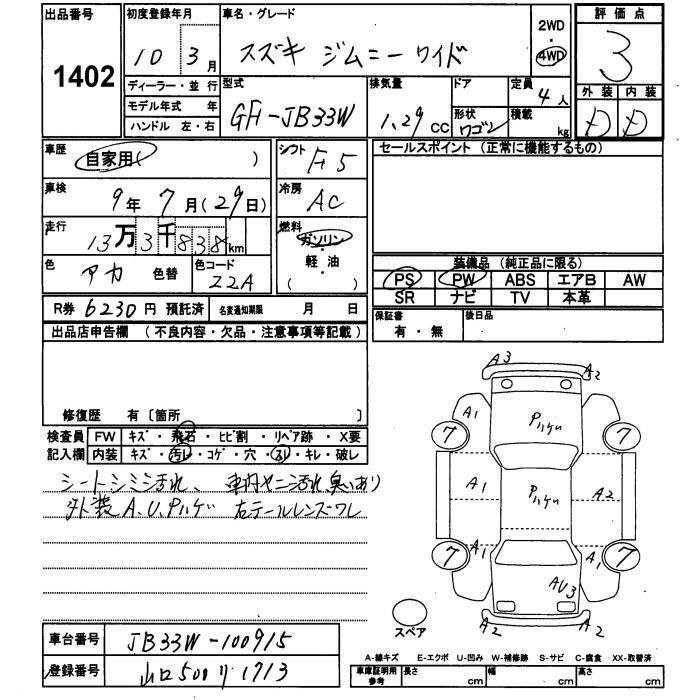 出品番号
1402
初度登録年月
10年 3月
ディーラー・並行
モデル年式 年
ハンドル 左・右
車名・グレード
スズキ ジムニーワイド
2WD
・
4WD
型式
GF-JB33W
排気量
1.29 CC
ドア
形状
ワゴン
定員
4人
積載
kg
評価点
3
外装 内装
D D
車歴
自家用( )
車検
9年 7月(29日)
走行
13万3千838km
色
アカ 色替
色コード
Z2A
シフト
F5
冷房
AC
燃料
ガソリン・
軽油
( )
セールスポイント (正常に機能するもの)
装備品 (純正品に限る)
PS PW ABS エアB AW
SR ナビ TV 本革
R券 6230円 預託済 名変通知期限 月 日
保証書
有・無
後日品
出品店申告欄 (不良内容・欠品・注意事項等記載)
修復歴 有〔箇所
検査員
記入欄
FW キズ・飛石・ヒビ割・リペア跡・X要
内装 キズ・汚レ・コゲ・穴・スレ・キレ・破レ
シートシミ汚れ、車内ヤニ汚れ臭いあり
外装A.U.Pハゲ 右テールレンズワレ
A3
A2
A1
Pハゲ
7
7
A1
Pハゲ
A2
A1
A1
7
7
AU3
A2
A2
スペア
車台番号
JB33W-100915
登録番号
山口500リ1713
A-線キズ E-エクボ U-凹み W-補修跡 S-サビ C-腐食 XX-取替済
車庫証明用
参考
長さ cm 幅 cm 高さ cm